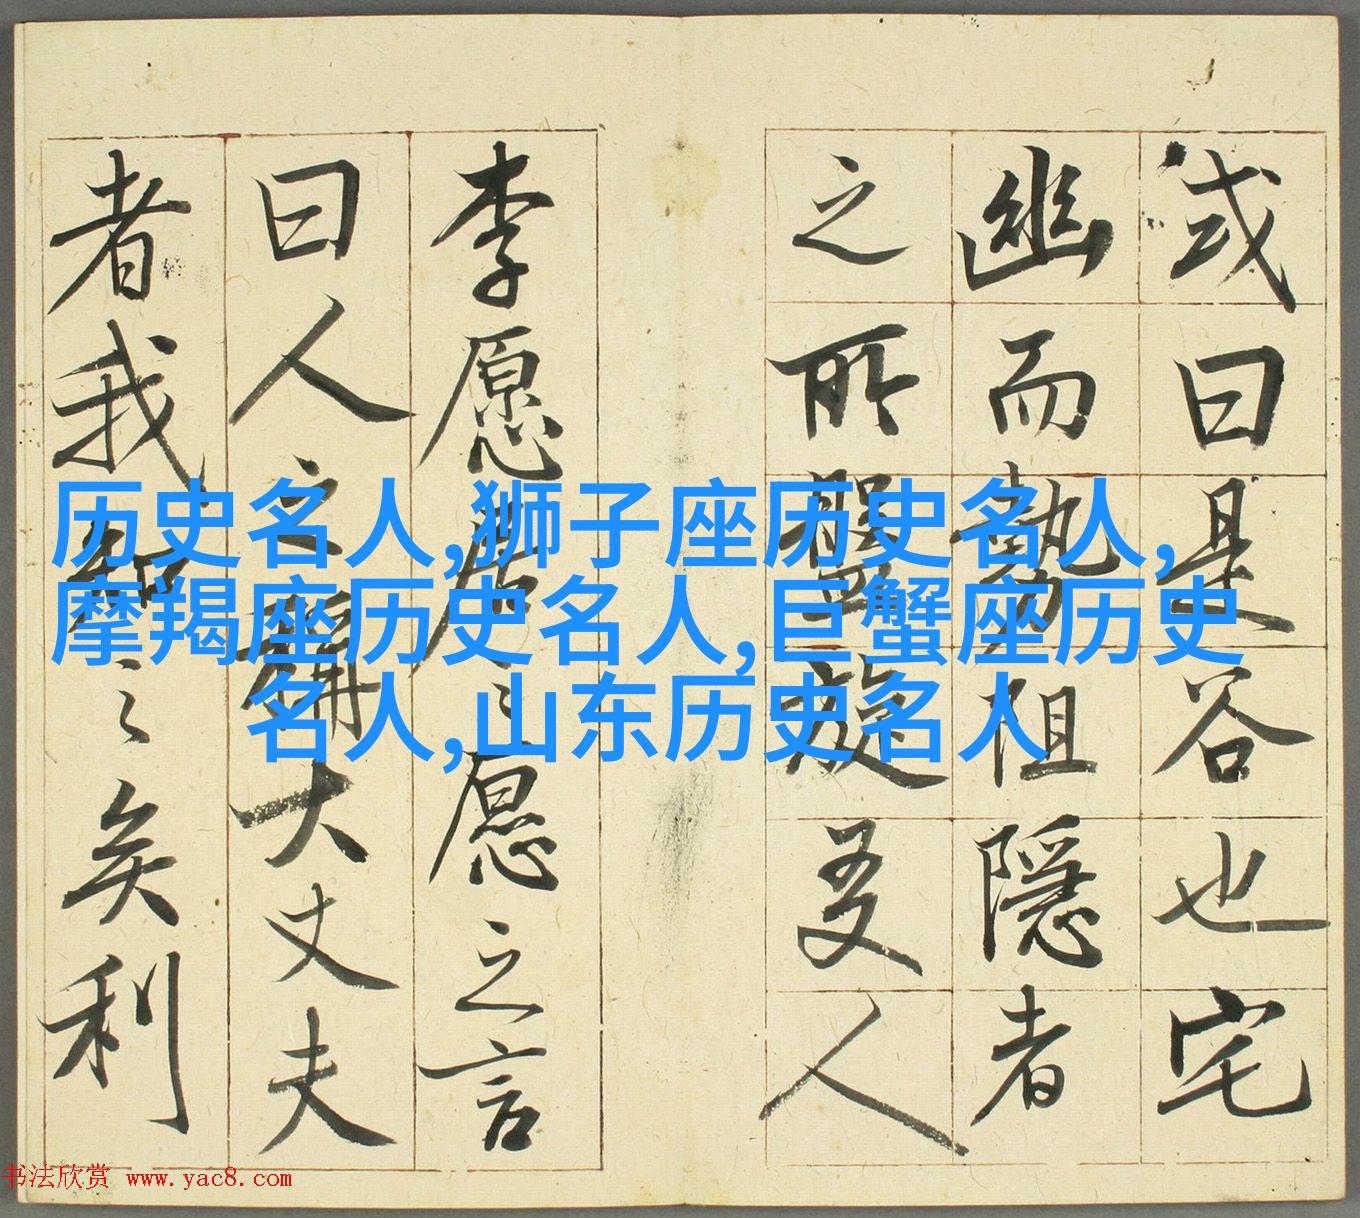 或曰是谷也宅
幽而勢阻隱者
之所盤旋友人
李愿居之愿之言
曰人之稱大丈夫
者我知之矣利
历史名人,狮子座历史名人,
摩羯座历史名人,巨蟹座历史
名人,山东历史名人
书法欣赏 www.yac8.com